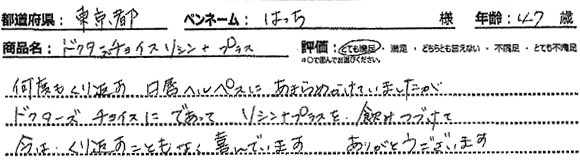 都道府県： 東京都 ペンネーム： はっち 様 年齢： 47 歳
商品名： ドクターズチョイスリシン+プラス 評価： とても満足 ・ 満足 ・ どちらとも言えない ・ 不満足 ・ とても不満足
※○で囲んでお選びください。
何度もくり返す 口唇ヘルペスに あきらめかけていましたが
ドクターズ チョイスに であって リシン+プラスを 飲みつづけて
今は、くり返すこともなく 喜んでいます ありがとうございます